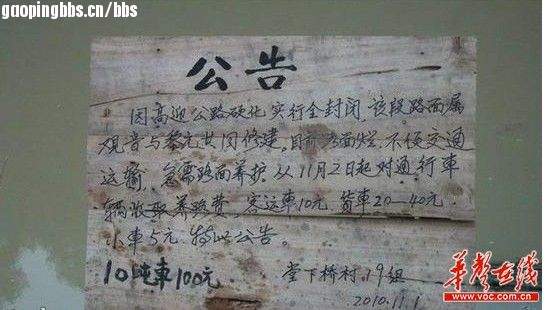 gaopingbbs.cn/bbs
公告
因高迎公路硬化实行全封闭,该段路面属
观音与黎元共同修建。目前路面烂,不便交通
运输,急需路面养护从11月2日起对通行车
辆收取养路费,客运车10元 货车20—40元
小车5元 特此公告。
10吨车100元.
堂下桥村.19组
2010.11.1
华声在线
www.voc.com.cn